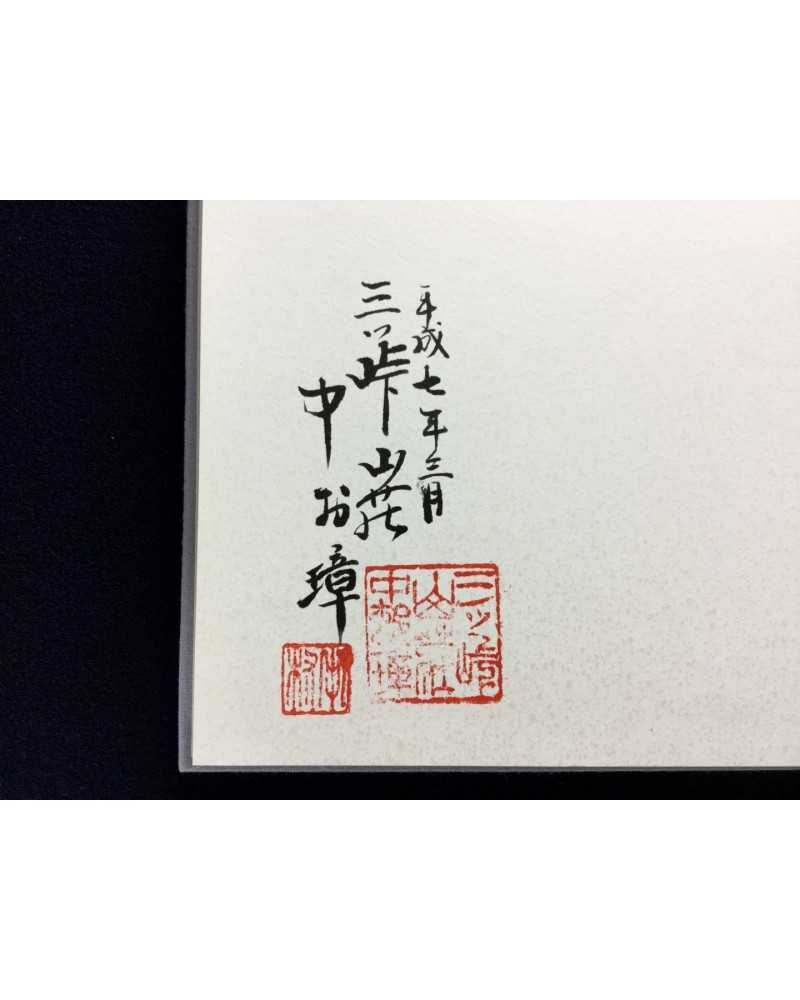 平成七年三月
三ッ峠山荘
中村璋
三ッ峠
山荘
中村璋